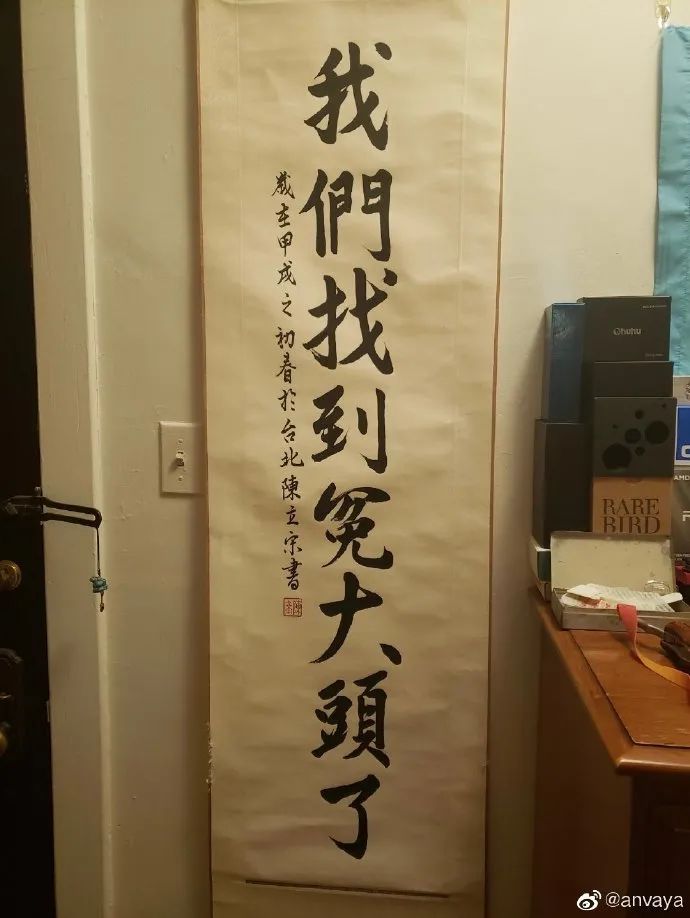 我們找到冤大頭了
歲在甲戌之初春於台北陳立宗書
Ohuhu
RARE
BIRD
AMD
@anvaya